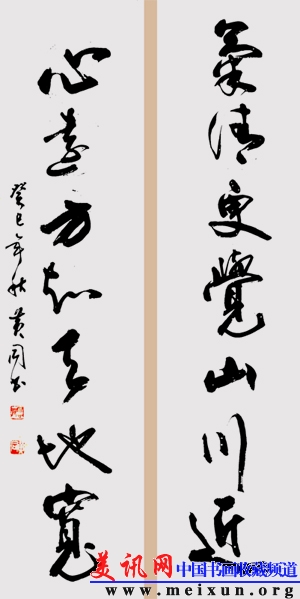 氣清更覺山川近
心遠方知天地寬
癸巳年秋黄书
美讯网 中国书画收藏频道
www.meixun.org